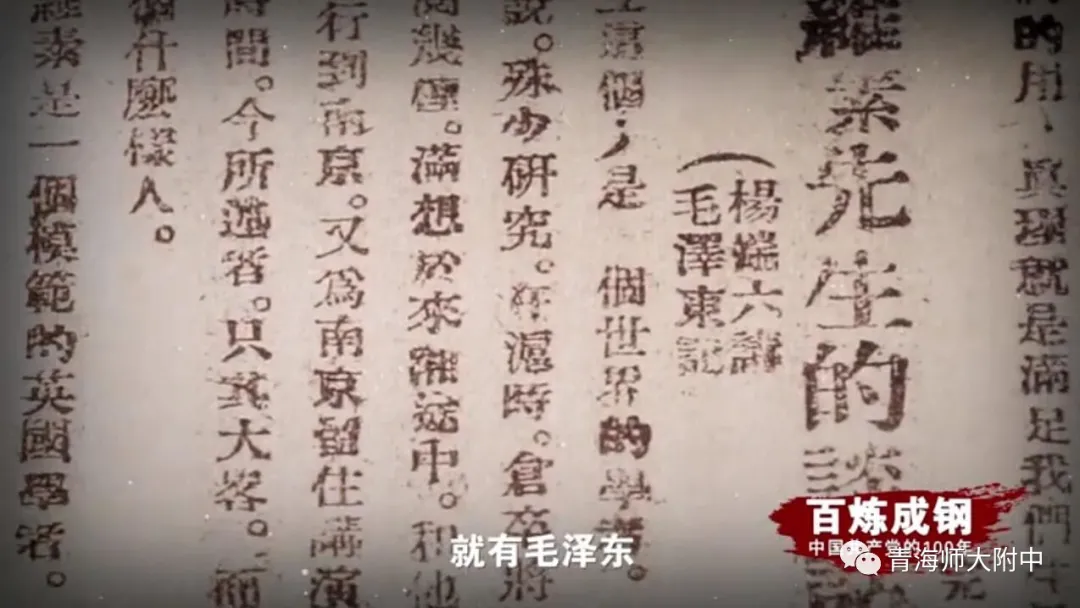 的用 真理就是滿足我們生
羅素先生的談話
（楊端六講
毛澤東記
這個人是 個世界的學者。
說。殊少研究。在滬時。倉卒將
閱幾便。滿想於來湘途中。和他
行到南京。又爲南京留住講演
時間。今所述者。只其大畧。
個什麼樣人。
羅素是一個模範的英國學者。
就有毛泽东
百炼成钢
中国共产党的100年
青海师大附中